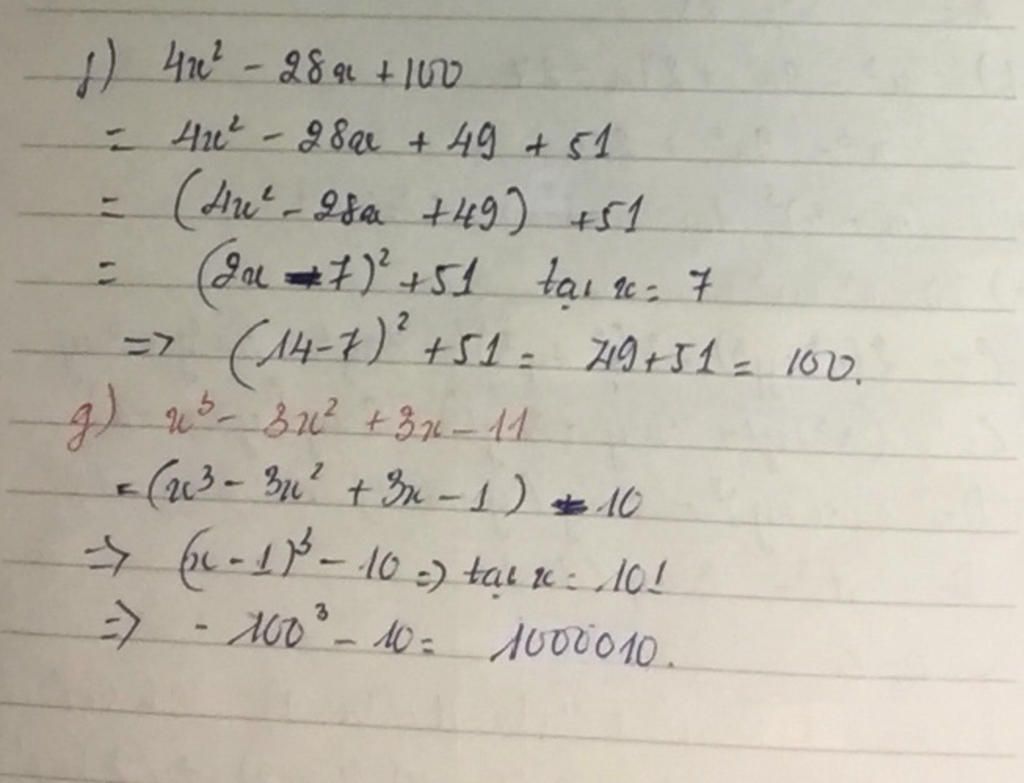 f) 4x² - 28x + 100
= 4x² - 28x + 49 + 51
= (4x² - 28x + 49) + 51
= (2x - 7)² + 51 tại x = 7
=> (14-7)² + 51 = 49+51 = 100.
g) x³ - 3x² + 3x - 11
= (x³ - 3x² + 3x - 1) - 10
=> (x - 1)³ - 10 => tại x = 101
=> - 100³ - 10 = 1000010.